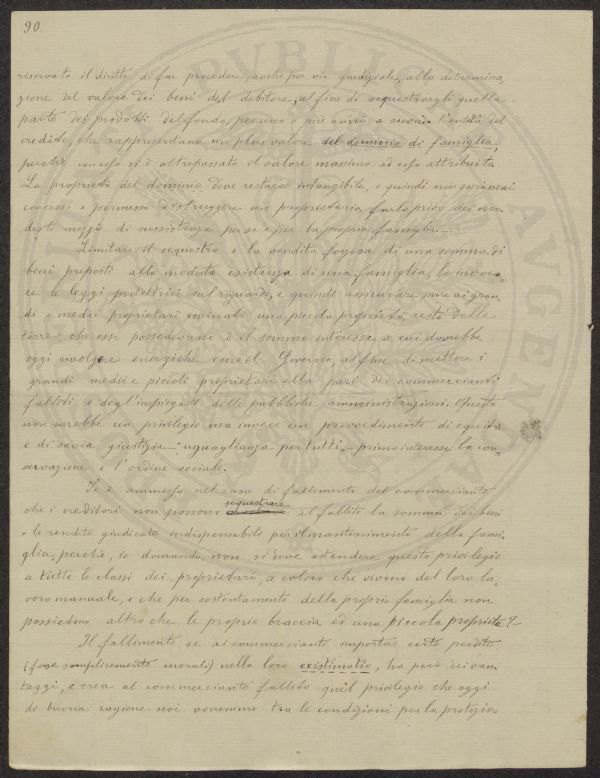 90.
riservato il diritto di far procedere, anche per via giudiziale, alla determina-
zione del valore dei beni del debitore, al fine di sequestrargli quella
parte dei prodotti del fondo, per uno o più anni a seconda l'entità del
credito, che rappresentano un plus valore del dominio di famiglia,
perchè con esso si è oltrepassato il valore massimo ad esso attribuito.
La proprietà del dominio deve restare intangibile, e quindi non sarà mai
concesso e permesso distruggere un proprietario, farlo privo dei mo-
desti mezzi di sussistenza per se e per la propria famiglia.—
Limitare il sequestro e la vendita forzosa di una somma di
beni preposti alla modesta esistenza di una famiglia, la invoca-
re le leggi protettrici sul riguardo, e quindi assicurare pure ai gran-
di e medii proprietari rovinati una piccola proprietà, resto delle
terre che essi possedevano è il sommo interesse a cui dovrebbe
oggi rivolgere energiche cure il Governo, al fine di mettere i
grandi medii e piccoli proprietari alla pari dei commercianti
falliti e degl'impiegati delle pubbliche amministrazioni. Questo
non sarebbe un privilegio ma invece un provvedimento di equità
e di savia giustizia — "uguaglianza per tutti — primo interesse la con-
servazione e l'ordine sociale.
Se è ammesso nel caso di fallimento del commerciante
che i creditori non possono sequestrare al fallito la somma dei beni
e le rendite giudicate indispensabili per il mantenimento della fami-
glia, perchè, io domando, non si deve estendere questo privilegio
a tutte le classi dei proprietari, a coloro che vivono del loro la-
voro manuale, e che per sostentamento della propria famiglia non
possiedono altro che le proprie braccia ed una piccola proprietà?
Il fallimento se ai commercianti importa certe perdite
(forse semplicemente morali) nella loro existimatio, ha però dei van-
taggi, e crea al commerciante fallito quel privilegio che oggi
di buona ragione noi vorremmo tra le condizioni per la protezio-